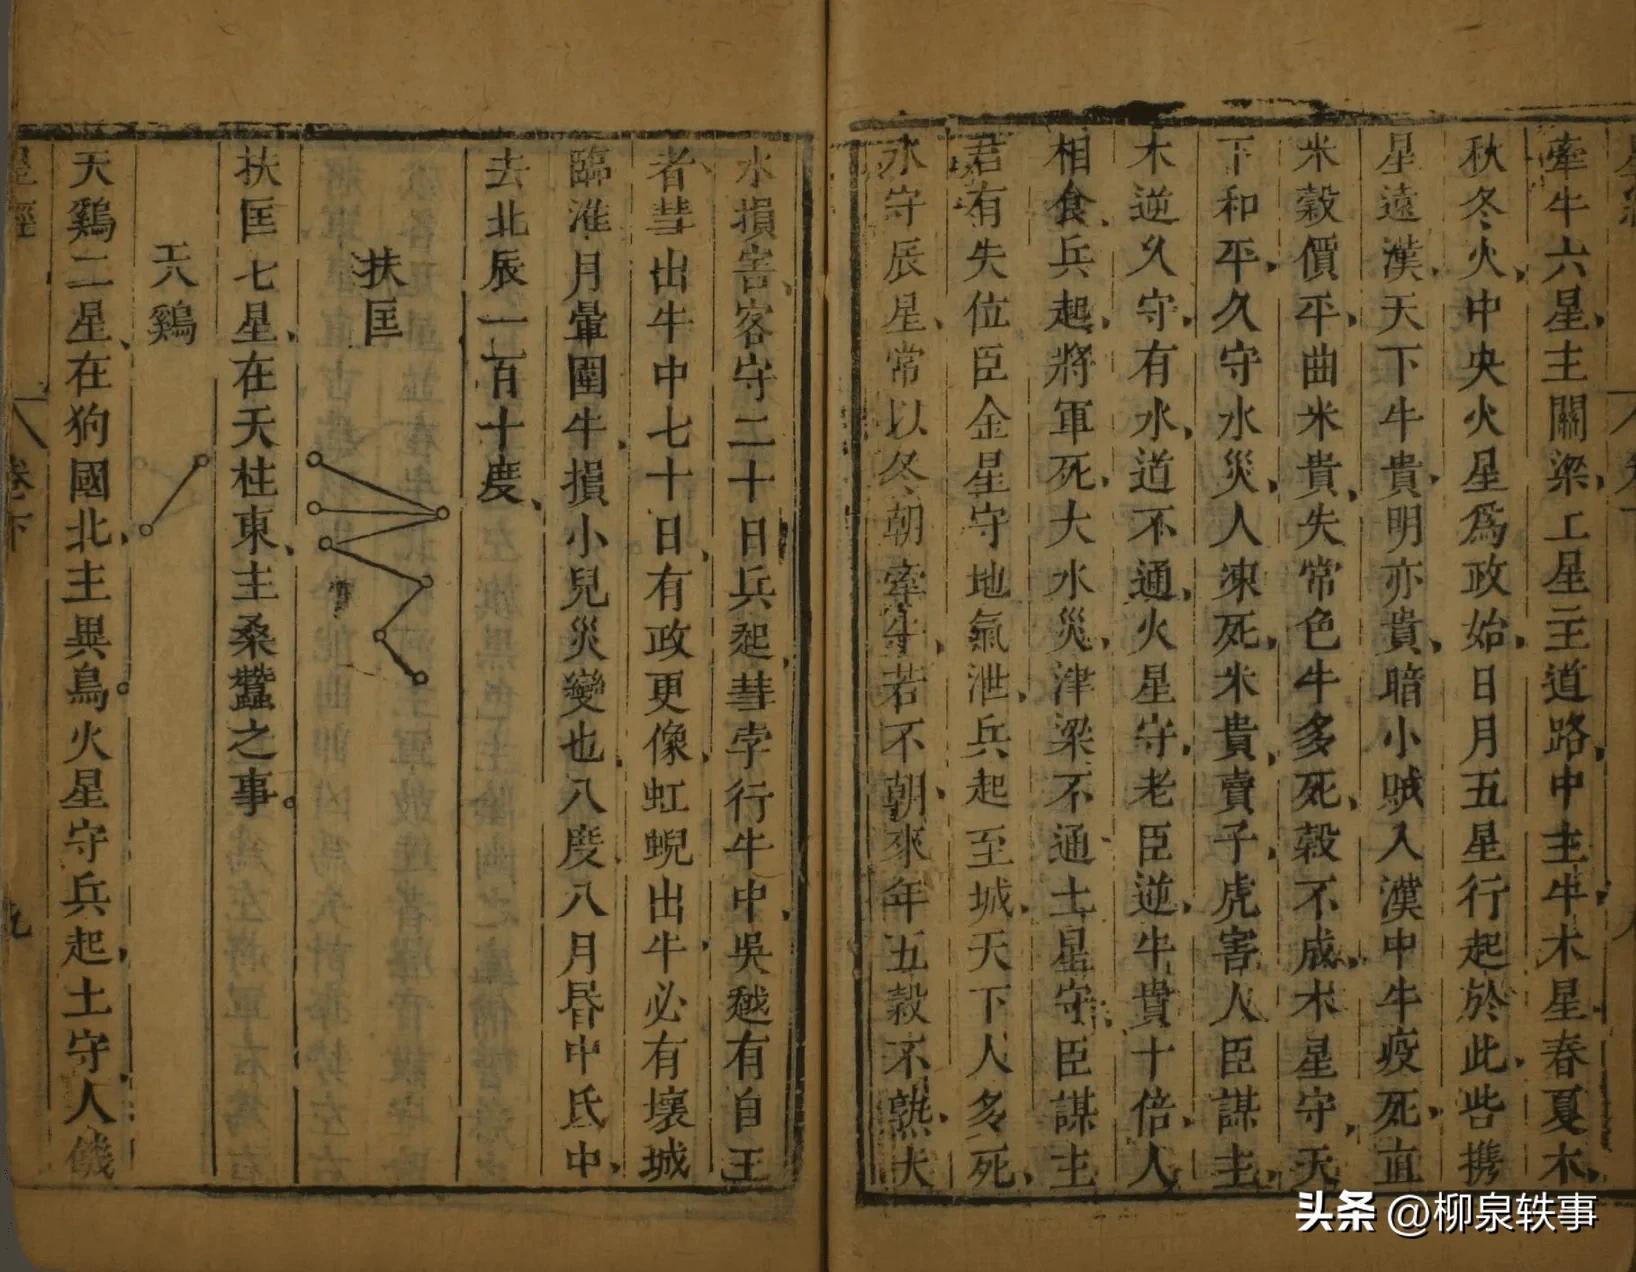 牽牛六星主關梁工星主道路中主牛木星春夏木
秋冬火中央火星爲政始日月五星行起於此些携
星遠漢天下牛貴明亦貴暗小賊入漢中牛疫死直
米穀價平曲米貴失常色牛多死穀不成木星守天
下和平久守水災人凍死米貴賣子虎害人臣謀主
木逆久守有水道不通火星守老臣逆牛貴十倍人
相食兵起將軍死大水災津梁不通土星守臣謀主
君有失位臣金星守地氣泄兵起至城天下人多死
水守辰星常以冬朝牽牛若不朝來年五穀不熟大
水損害客守二十日兵起彗孛行牛中吳越有自王
者彗出牛中七十日有政更像虹蜺出牛必有壞城
臨淮月暈圍牛損小兒災變也八度八月昏中氐中
去北辰一百十度
扶匡
扶匡七星在天柱東主桑蠶之事
天鷄
天鷄二星在狗國北主異鳥火星守兵起土守人儀
星經
卷下
九
头条 @柳泉轶事